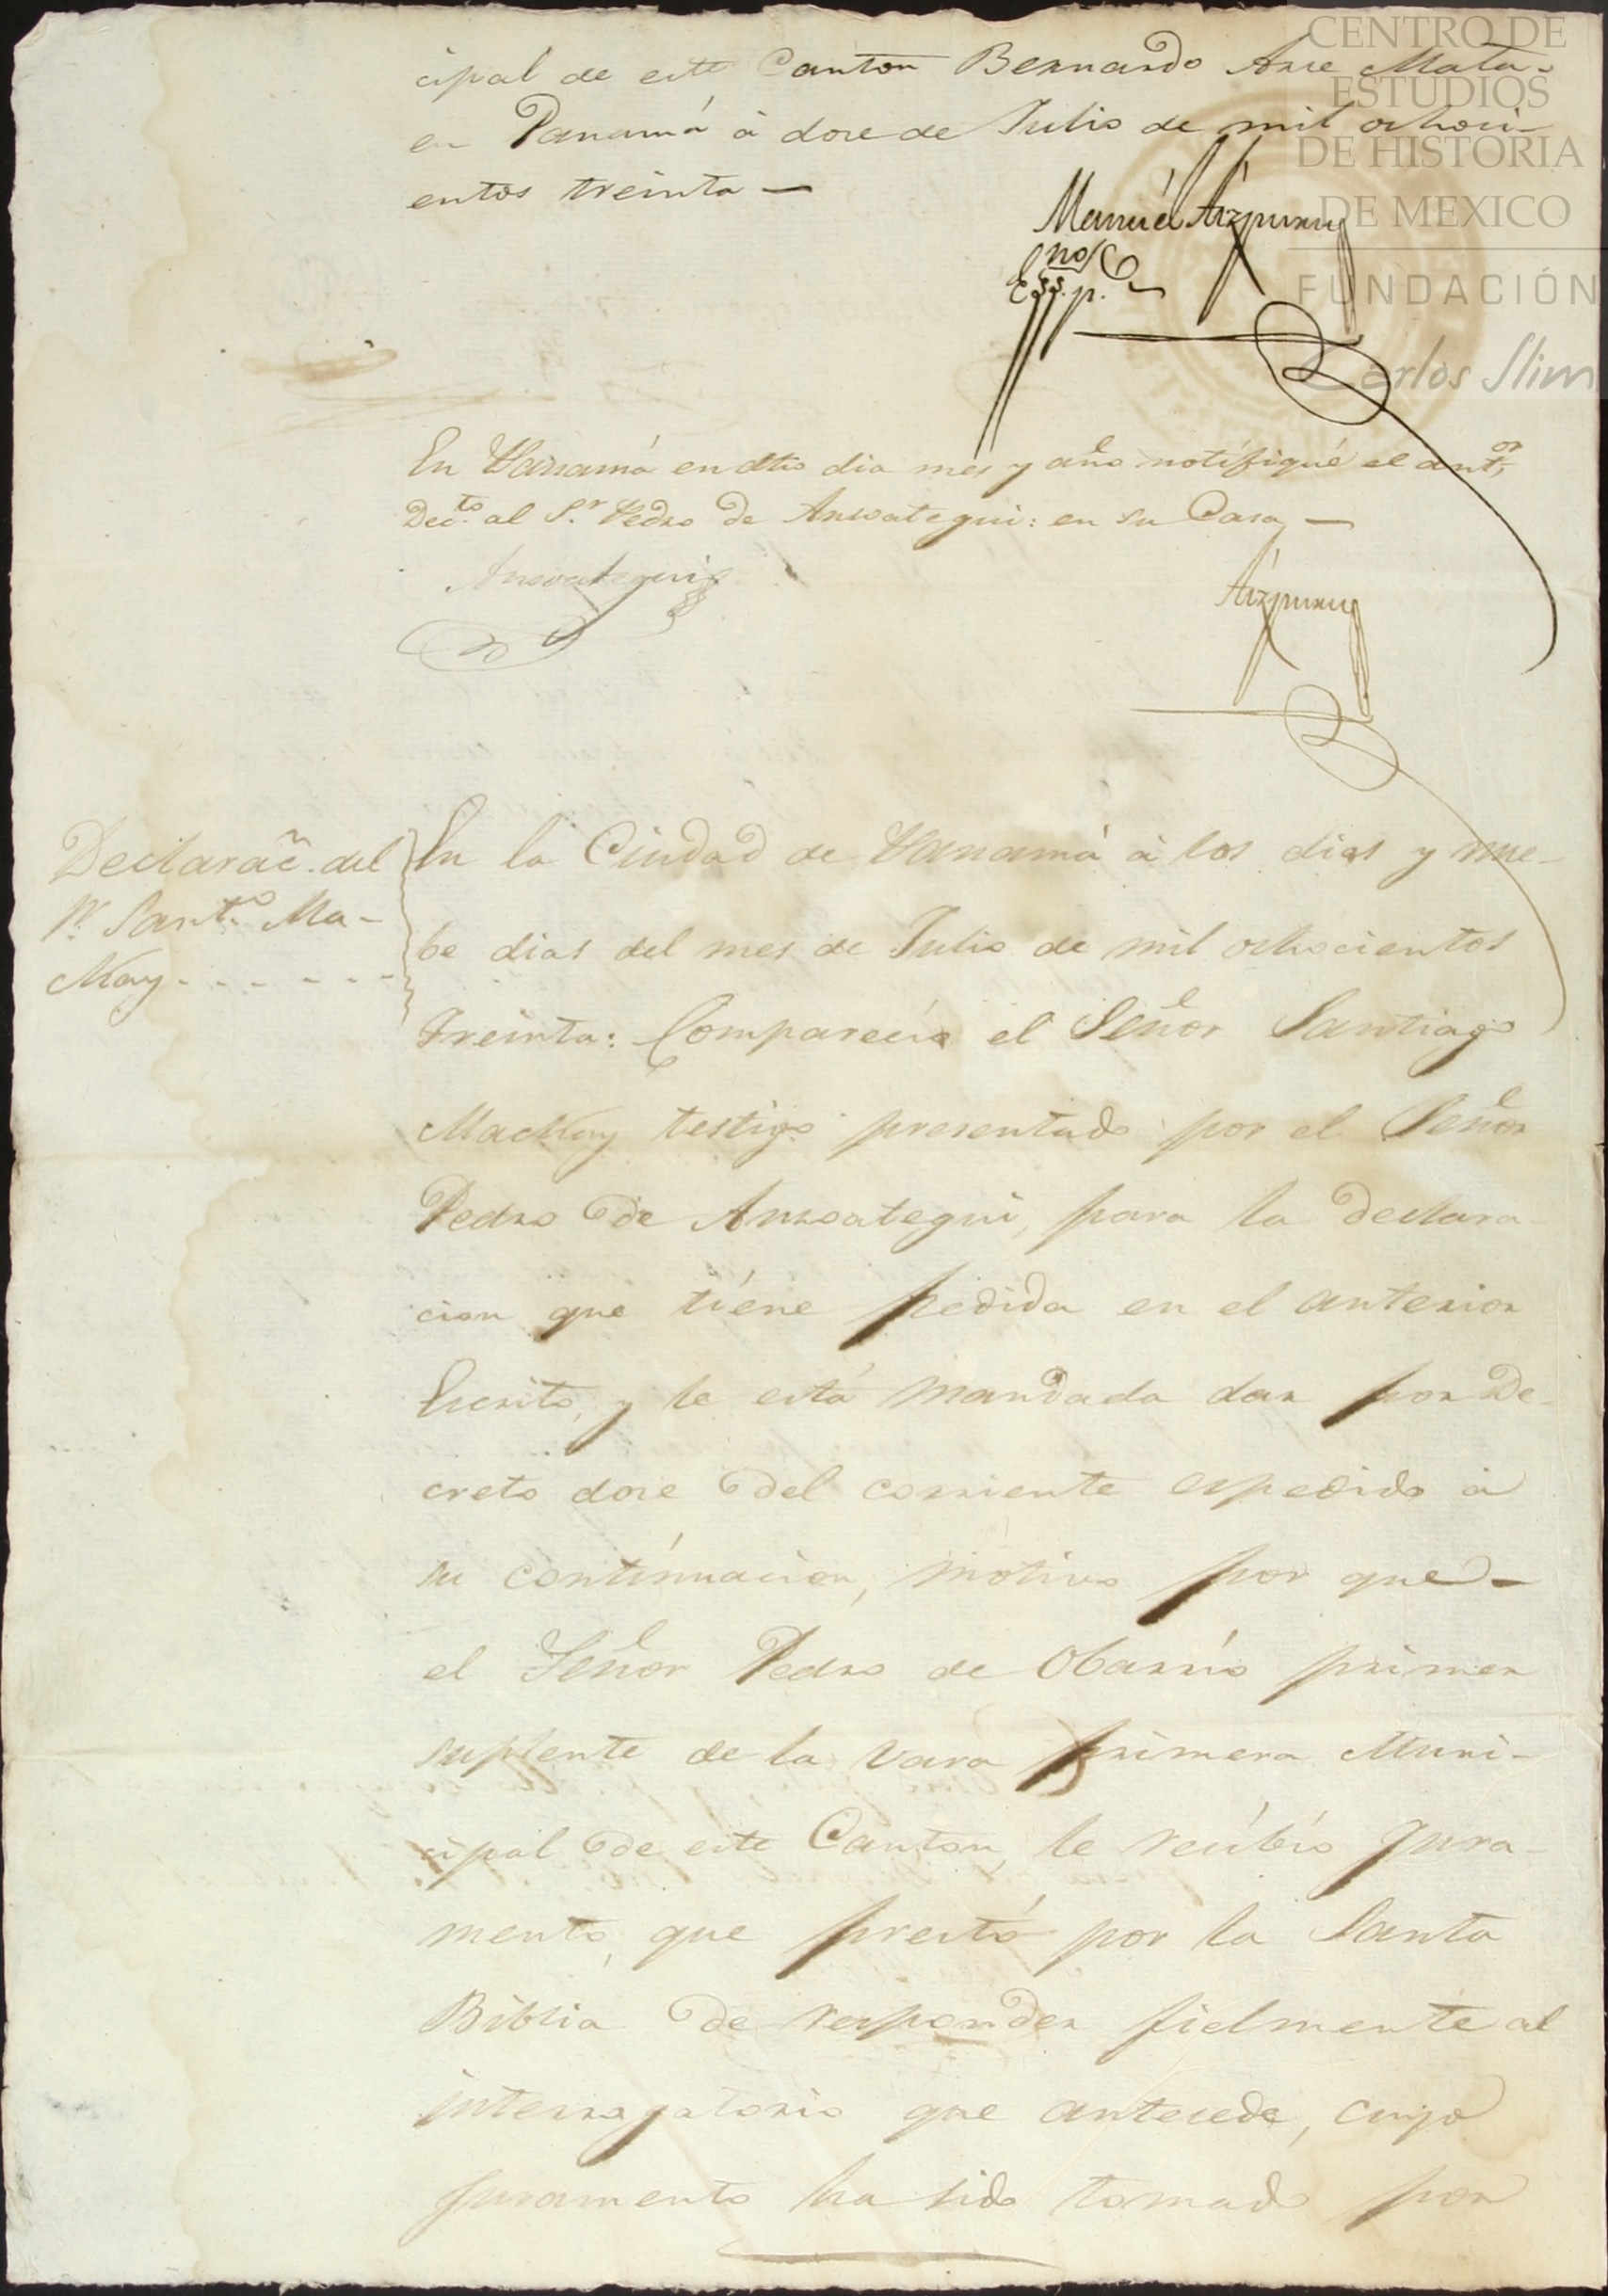 CENTRO DE
ESTUDIOS
DE HISTORIA
DE MEXICO
FUNDACIÓN
Carlos Slim
cipal de este Canton Bernardo Arce Mata.
en Panamá à dose de Julio de mil ochoci-
entos treinta —
Manuel Aizpuru
Esno p.co
En Panamá en dho dia mes y año notifiqué el antr.or
Dec.to al S.r Pedro de Ansoategui: en su Casa —
Ansoategui
Aizpuru
Declarac̃. del
Sr. Sant.o Ma-
ckay - - - - - -
En la Ciudad de Panamá à los dies y nue-
be dias del mes de Julio de mil ochocientos
treinta: Comparecio el Señor Santiago
Mackay testigo presentado por el Señor
Pedro de Ansoategui, para la declara-
cion que tiéne pedida en el anterior
Escrito, y le está mandada dar por De-
creto dose del corriente espedido à
su continuacion, motivo por que -
el Señor Pedro de Obarrio primer
suplente de la vara primera Muni-
cipal de este Canton, le recibio jura-
mento, que prestó por la Santa
Biblia de responder fielmente al
interrogatorio que antecede, cuyo
juramento ha sido tomado por